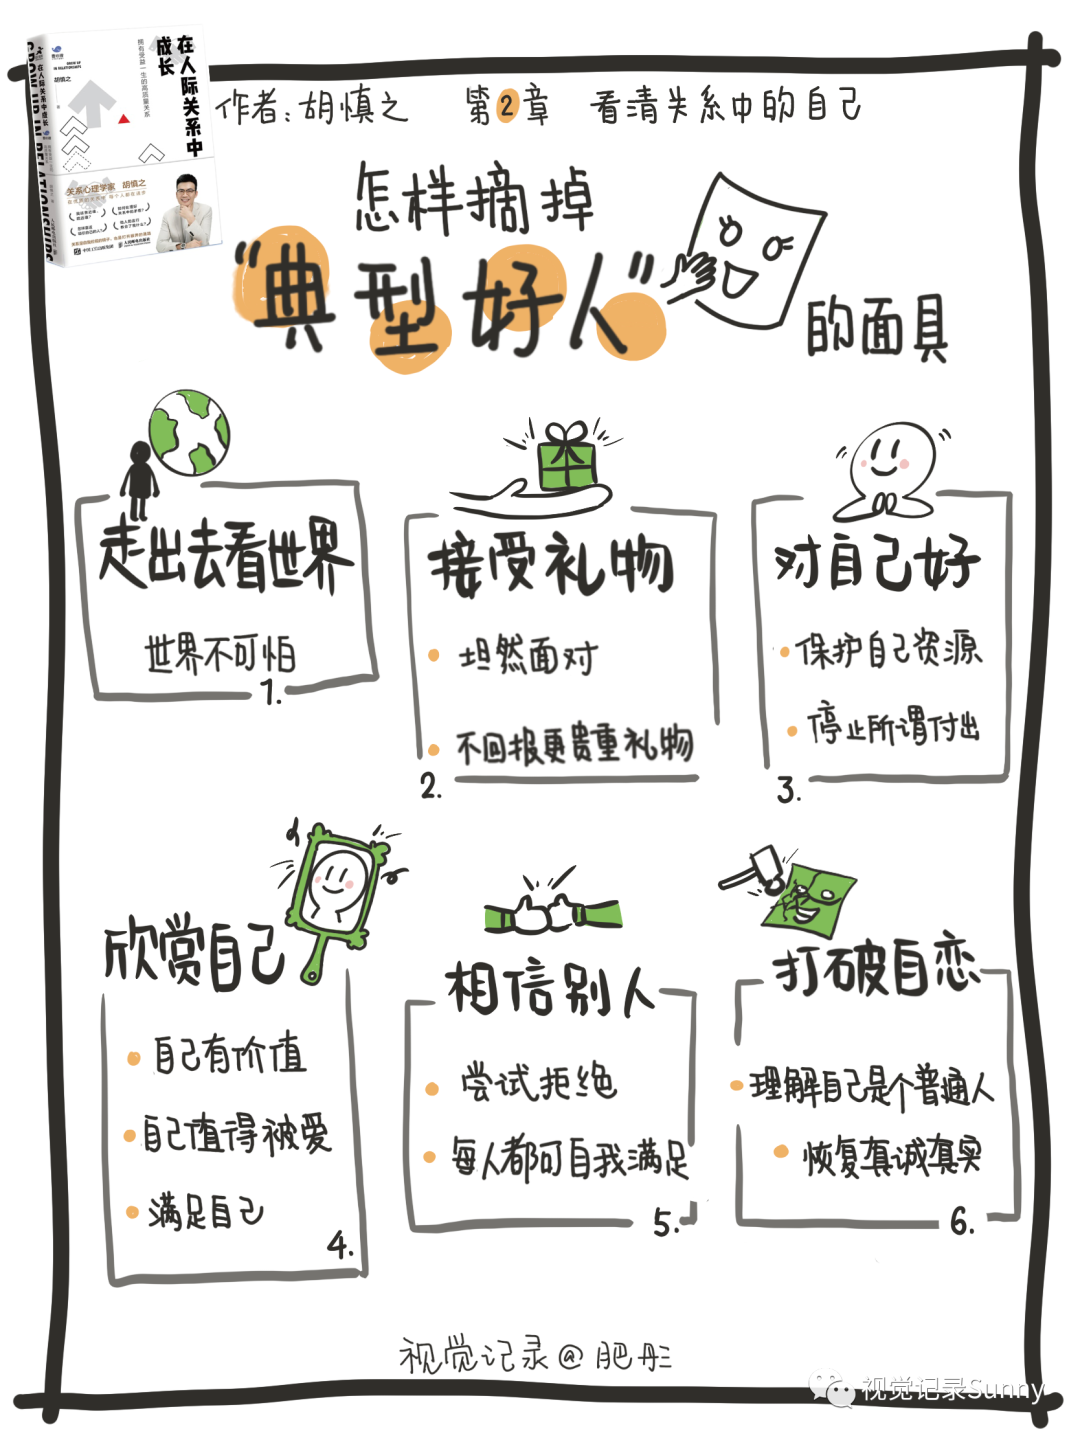 在人际关系中
成长
拥有受益一生的高质量关系
胡慎之
在人际关系中成长
GROW UP IN RELATIONSHIPS
关系心理学家 胡慎之
人民邮电出版社
作者:胡慎之 第2章 看清关系中的自己
怎样摘掉
“典型好人”
的面具
走出去看世界
世界不可怕
1.
接受礼物
坦然面对
不回报更贵重礼物
2.
对自己好
保护自己资源
停止所谓付出
3.
欣赏自己
自己有价值
自己值得被爱
满足自己
4.
相信别人
尝试拒绝
每人都可自我满足
5.
打破自恋
理解自己是个普通人
恢复真诚真实
6.
视觉记录@肥彤
视觉记录Sunny